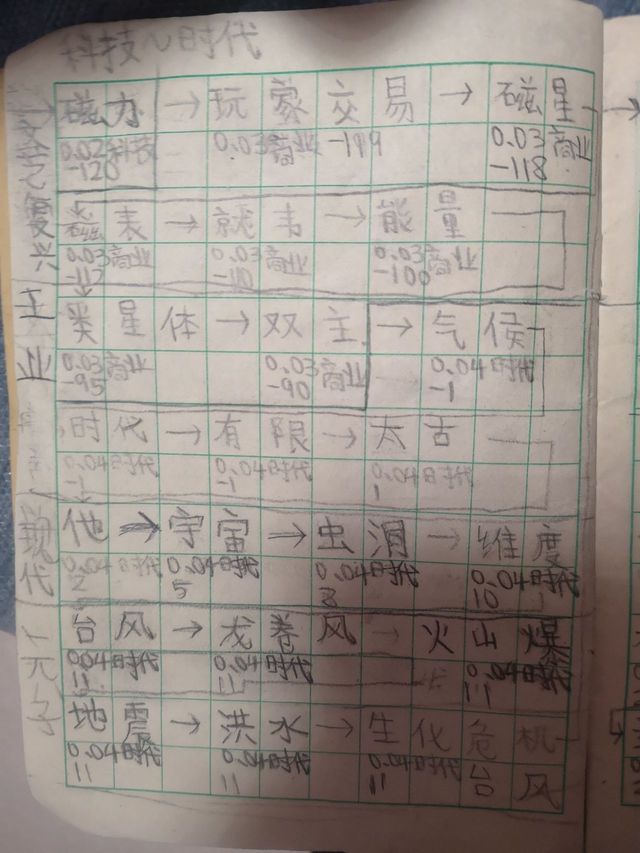 科技~时代
磁力→玩蒙交易→磁星
0.02科技 0.03商业-199 0.03商业
-120 -118
磁表→就韦→能量
0.03商业 0.03商业 0.03商业
-112 -110 -100
类星体→双主→气候
0.03商业 0.03商业 0.04时代
-95 -90 -1
时代→有限→太古
0.04时代 0.04时代 0.04时代
-1 -1 1
他→宇宙→虫洞→维度
0.04时代 0.04时代 0.04时代 0.04时代
2 5 8 10
台风→龙卷风→火山爆
0.04时代 0.04时代 0.04时代
11 11 11
地震→洪水→生化危机
0.04时代 0.04时代 0.04时代 台风
11 11 11
复兴
工业
现代
元子